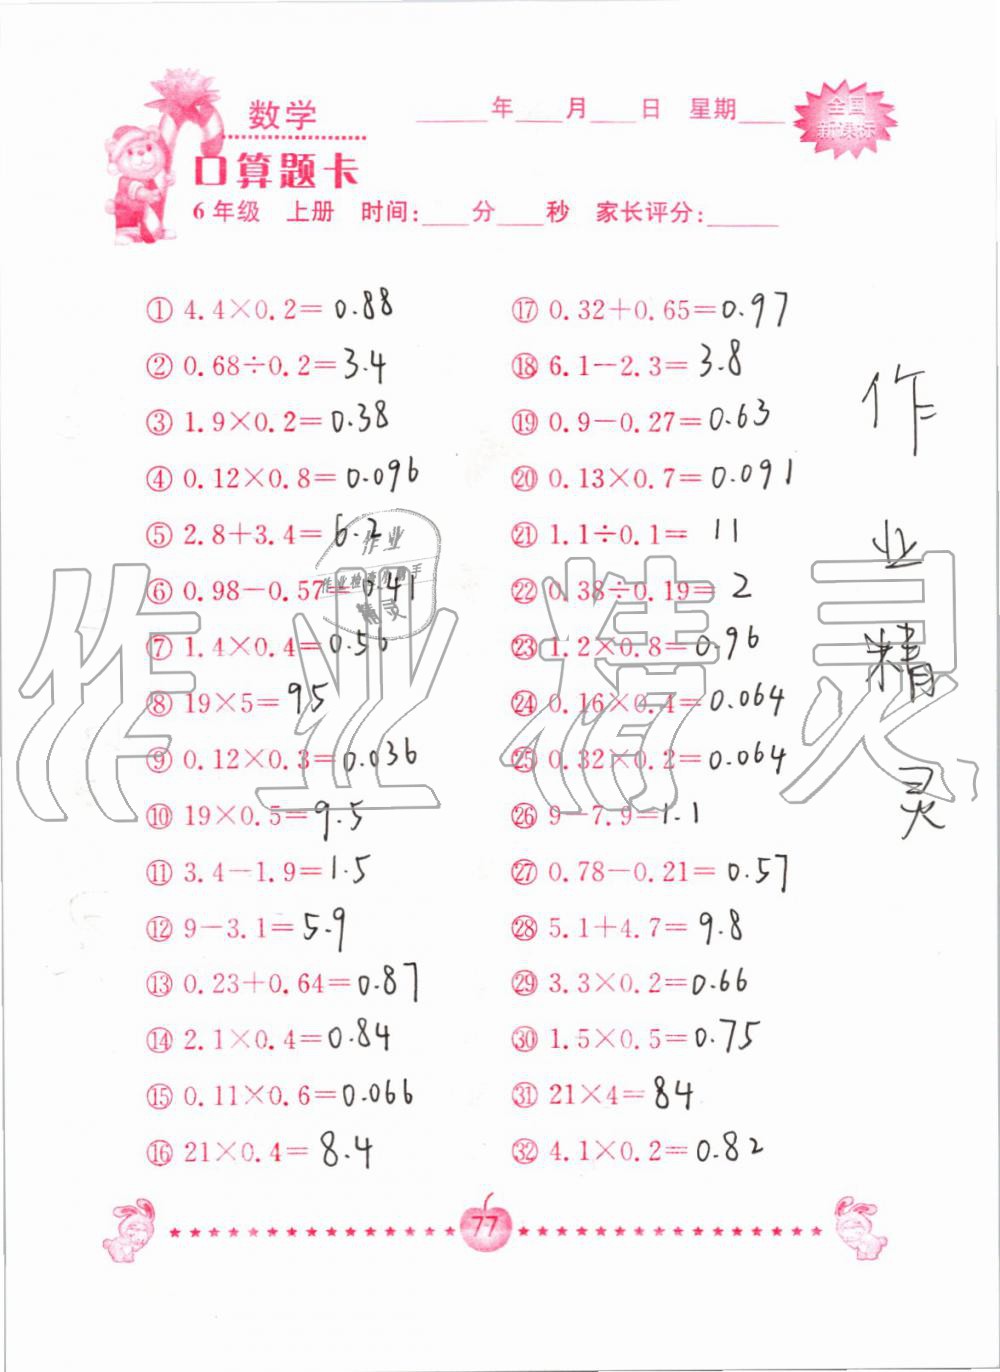 数学
____年____月____日 星期____
全国
新课标
口算题卡
6年级 上册 时间:____分____秒 家长评分:____
① 4.4×0.2=0.88
② 0.68÷0.2=3.4
③ 1.9×0.2=0.38
④ 0.12×0.8=0.096
⑤ 2.8+3.4=6.2
⑥ 0.98-0.57=0.41
⑦ 1.4×0.4=0.56
⑧ 19×5=95
⑨ 0.12×0.3=0.036
⑩ 19×0.5=9.5
⑪ 3.4-1.9=1.5
⑫ 9-3.1=5.9
⑬ 0.23+0.64=0.87
⑭ 2.1×0.4=0.84
⑮ 0.11×0.6=0.066
⑯ 21×0.4=8.4
⑰ 0.32+0.65=0.97
⑱ 6.1-2.3=3.8
⑲ 0.9-0.27=0.63
⑳ 0.13×0.7=0.091
㉑ 1.1÷0.1=11
㉒ 0.38÷0.19=2
㉓ 1.2×0.8=0.96
㉔ 0.16×0.4=0.064
㉕ 0.32×0.2=0.064
㉖ 9-7.9=1.1
㉗ 0.78-0.21=0.57
㉘ 5.1+4.7=9.8
㉙ 3.3×0.2=0.66
㉚ 1.5×0.5=0.75
㉛ 21×4=84
㉜ 4.1×0.2=0.82
作
业
精
灵
作业
作业检查小助手
精灵
作业精灵
77